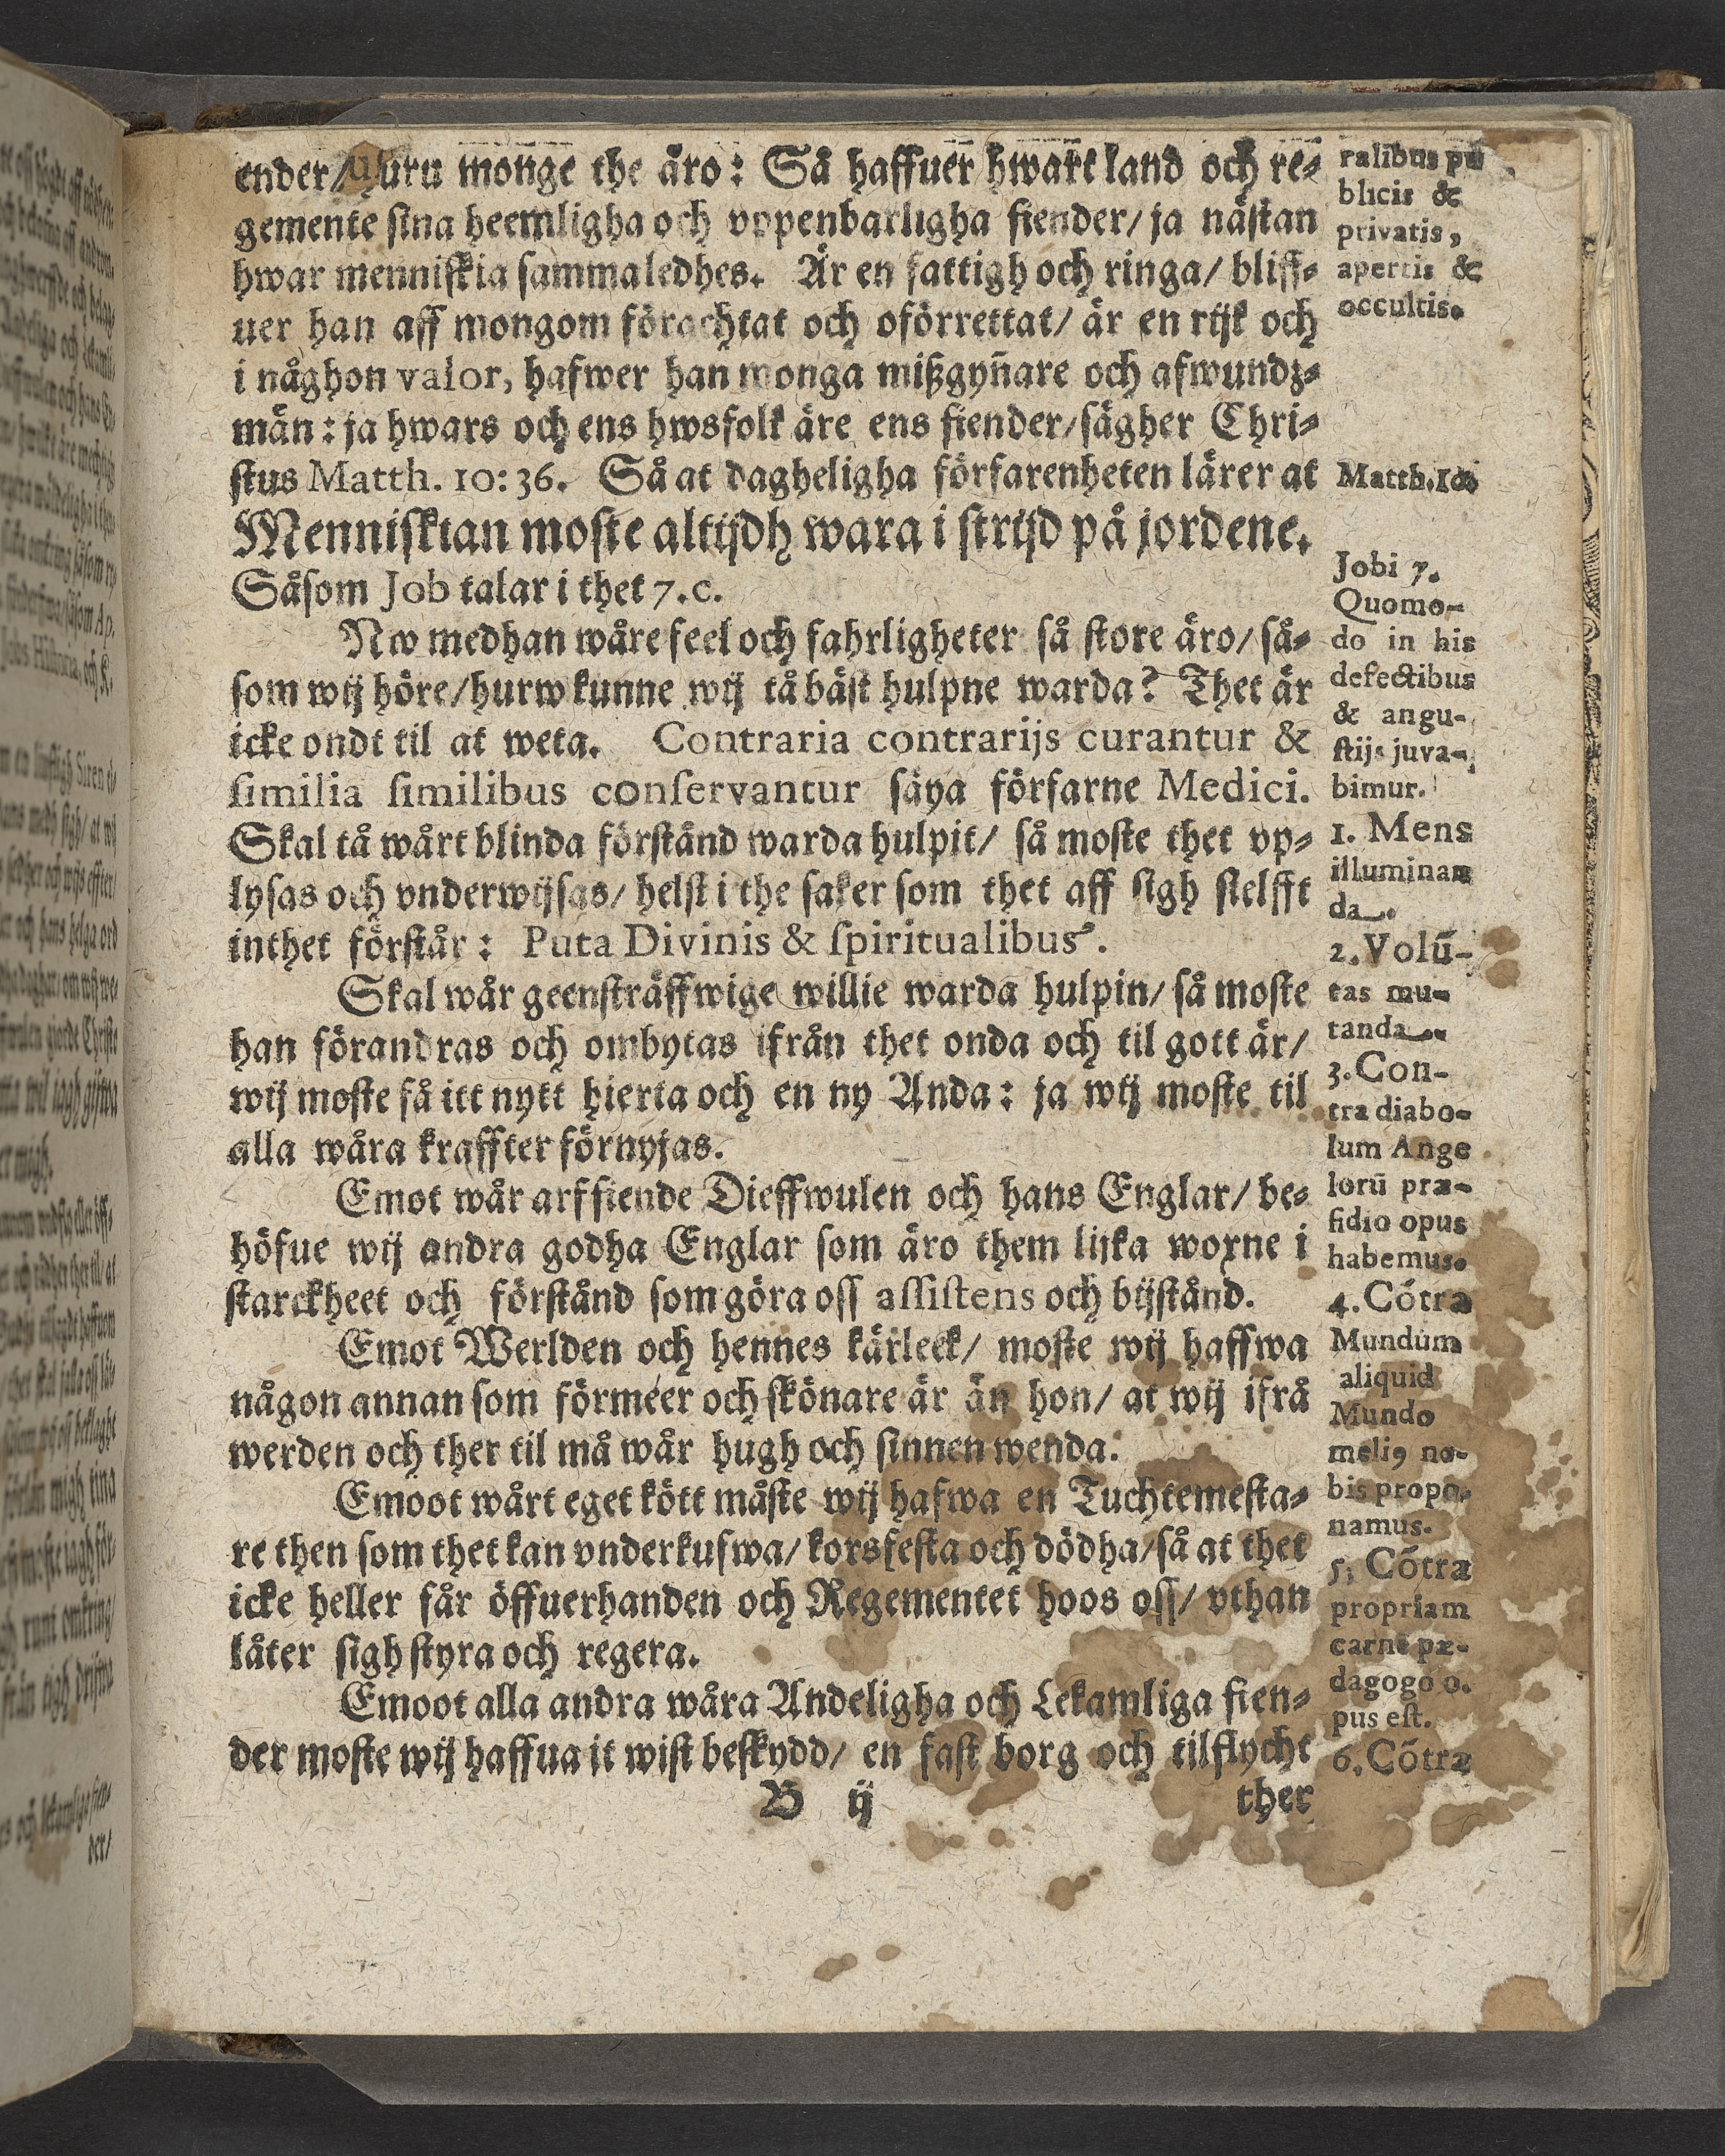 ender/ huru monge the äro: Så haffuer hwart land och re-
gemente sina heemligha och vppenbarligha fiender/ ja nästan
hwar menniskia sammaledhes. Är en fattigh och ringa/ bliff-
uer han aff mongom förachtat och oförrettat/ är en rijk och
i någhon valor, hafwer han monga mißgyñare och afwundz-
män: ja hwars och ens hwsfolk äre ens fiender/ sägher Chri-
stus Matth. 10: 36. Så at dagheligha förfarenheten lärer at
Menniskian moste altijdh wara i strijd på jordene.
Såsom Job talar i thet 7. c.
Nw medhan wåre feel och fahrligheter så store äro/ så-
som wij höre/ hurw kunne wij tå bäst hulpne warda? Thet är
icke ondt til at weta. Contraria contrarijs curantur &
similia similibus conservantur säya förfarne Medici.
Skal tå wårt blinda förstånd warda hulpit/ så moste thet vp-
lysas och vnderwijsas/ helst i the saker som thet aff sigh sielfft
inthet förstår: Puta Divinis & spiritualibus.
Skal wår geensträffwige willie warda hulpin/ så moste
han förandras och ombytas ifrån thet onda och til gott är/
wij moste få itt nytt hierta och en ny Anda: ja wij moste til
alla wåra kraffter förnyjas.
Emot wår arffiende Dieffwulen och hans Englar/ be-
höfue wij andra godha Englar som äro them lijka woxne i
starckheet och förstånd som göra oss assistens och bijstånd.
Emot Werlden och hennes kärleek/ moste wij haffwa
någon annan som förmeer och skönare är än hon/ at wij ifrå
werden och ther til må wår hugh och sinnen wenda.
Emoot wårt eget kött måste wij hafwa en Tuchtemesta-
re then som thet kan vnderkufwa/ korsfesta och dödha/ så at thet
icke heller får öffuerhanden och Regementet hoos oss/ vthan
låter sigh styra och regera.
Emoot alla andra wåra Andeligha och Lekamliga fien-
der moste wij haffua it wist beskydd/ en fast borg och tilflycht
B ij
ther
ralibus pu
blicis &
privatis,
apertis &
occultis.
Matth. 10
Jobi 7.
Quomo-
do in his
defectibus
& angu-
stijs juva-
bimur.
1. Mens
illuminan
da.
2. Volū-
tas mu-
tanda.
3. Con-
tra diabo-
lum Ange
lorū præ-
sidio opus
habemus.
4. Cōtra
Mundum
aliquid
Mundo
meliꝰ no-
bis propo-
namus.
5. Cōtra
propriam
carnē pæ-
dagogo o-
pus est.
6. Cōtra